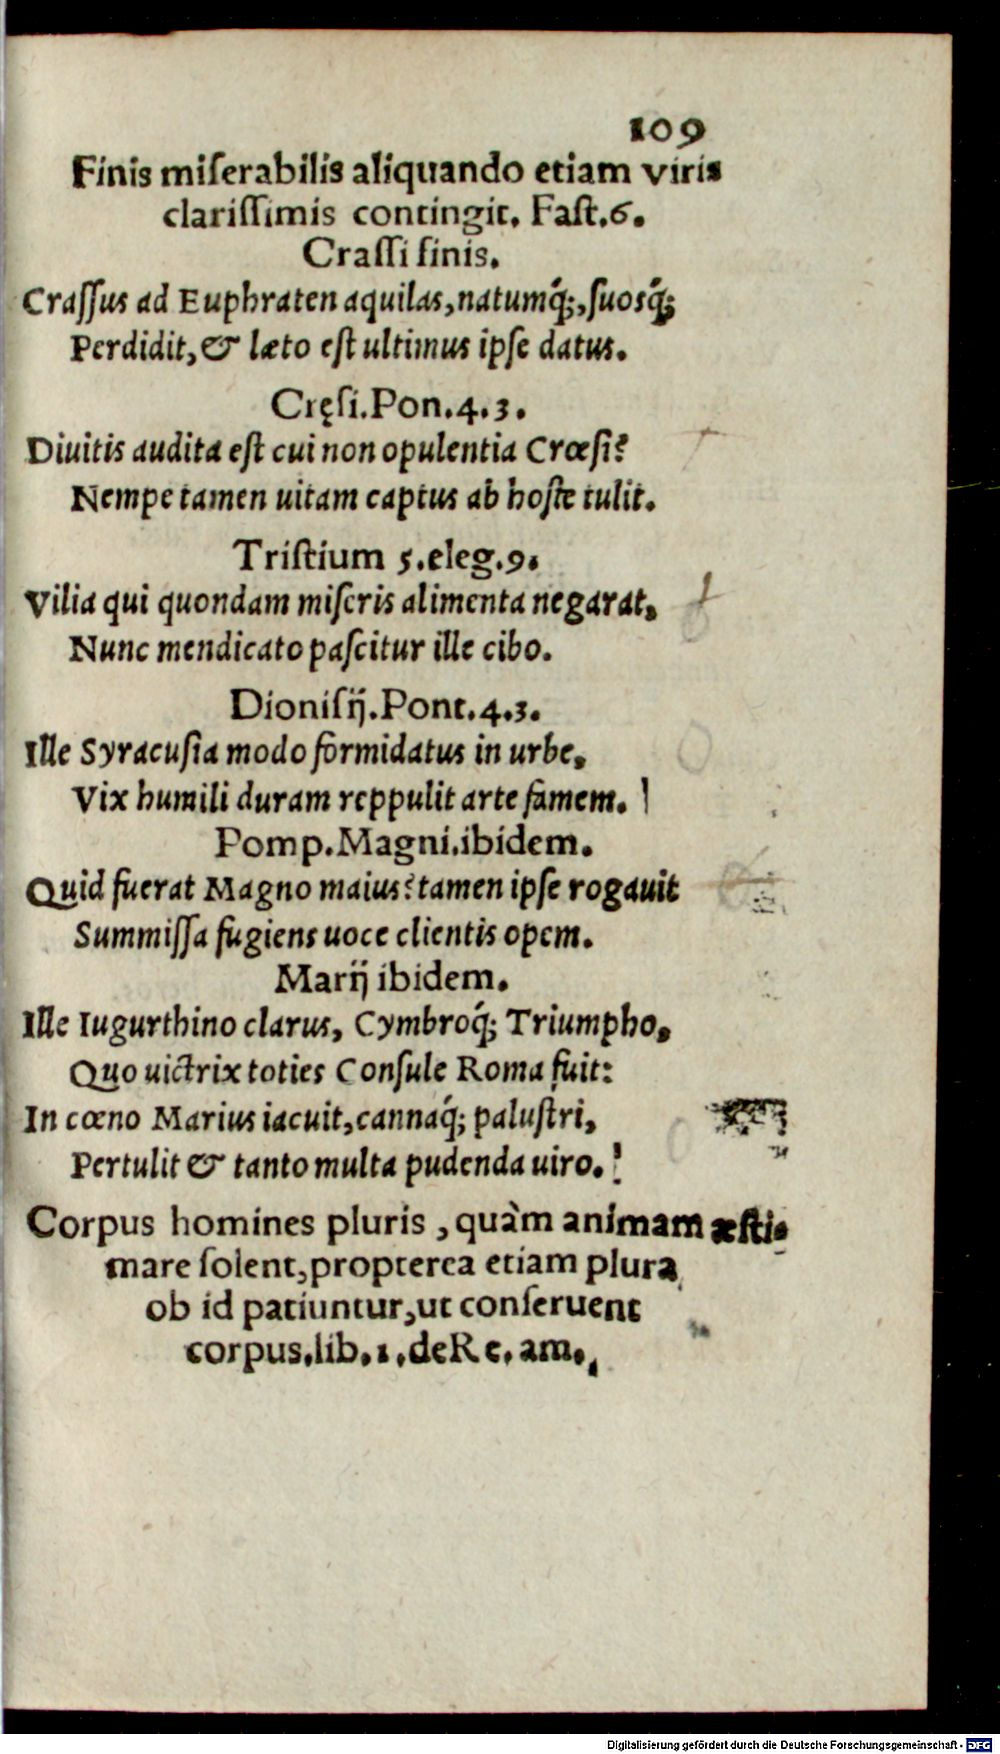 109
Finis miſerabilis aliquando etiam viris
clariſſimis contingit. Faſt.6.
Craſſi finis.
Craſſus ad Euphraten aquilas, natumq́;, ſuosq́;
Perdidit, & læto eſt ultimus ipſe datus.
Cręſi.Pon.4.3.
Diuitis audita eſt cui non opulentia Crœſi?
Nempe tamen uitam captus ab hoſte tulit.
Triſtium 5.eleg.9.
Vilia qui quondam miſeris alimenta negarat,
Nunc mendicato paſcitur ille cibo.
Dioniſij.Pont.4.3.
Ille Syracuſia modo formidatus in urbe,
Vix humili duram reppulit arte famem.
Pomp.Magni.ibidem.
Quid fuerat Magno maius? tamen ipſe rogauit
Summiſſa fugiens uoce clientis opem.
Marij ibidem.
Ille Iugurthino clarus, Cymbroq́; Triumpho,
Quo uictrix toties Conſule Roma fuit:
In cœno Marius iacuit, cannaq́; paluſtri,
Pertulit & tanto multa pudenda uiro.
Corpus homines pluris, quàm animam æſti-
mare ſolent, propterea etiam plura
ob id patiuntur, ut conſeruent
corpus.lib.1.de Re. am.
Digitalisierung gefördert durch die Deutsche Forschungsgemeinschaft - DFG